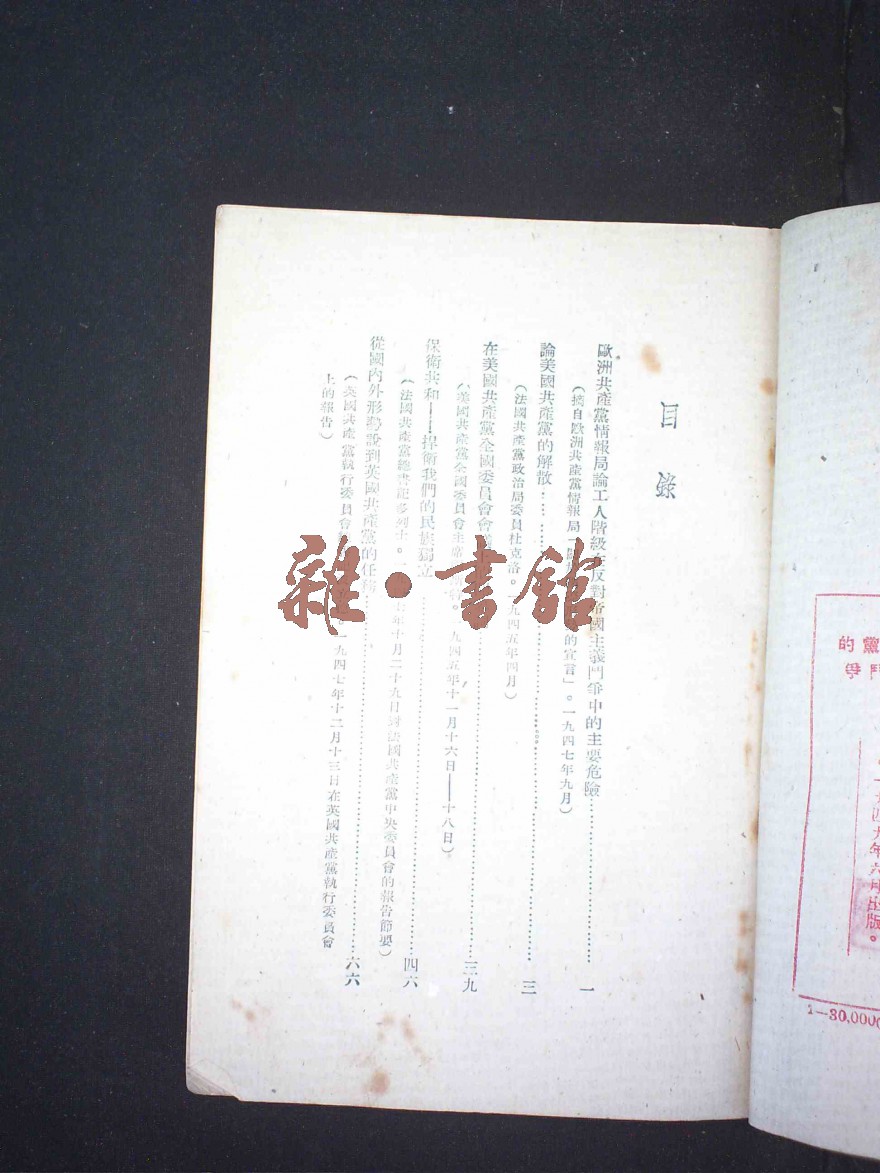 目錄
歐洲共產黨情報局論工人階級在反對帝國主義鬥爭中的主要危險……一
（摘自歐洲共產黨情報局 的宣言」。一九四七年九月）
論美國共產黨的解散……三
（法國共產黨政治局委員杜克洛。一九四五年四月）
在美國共產黨全國委員會會議……三九
（美國共產黨全國委員會主席 一九四五年十一月十六日——十八日）
保衛共和——捍衛我們的民族獨立……四六
（法國共產黨總書記多列士。 七年十月二十九日對法國共產黨中央委員會的報告節要）
從國內外形勢說到英國共產黨的任務……六六
（英國共產黨執行委員會 一九四七年十二月十三日在英國共產黨執行委員會
上的報告）
雜·書館
黨的
鬥爭
一九四九年六月出版。
1—30,000